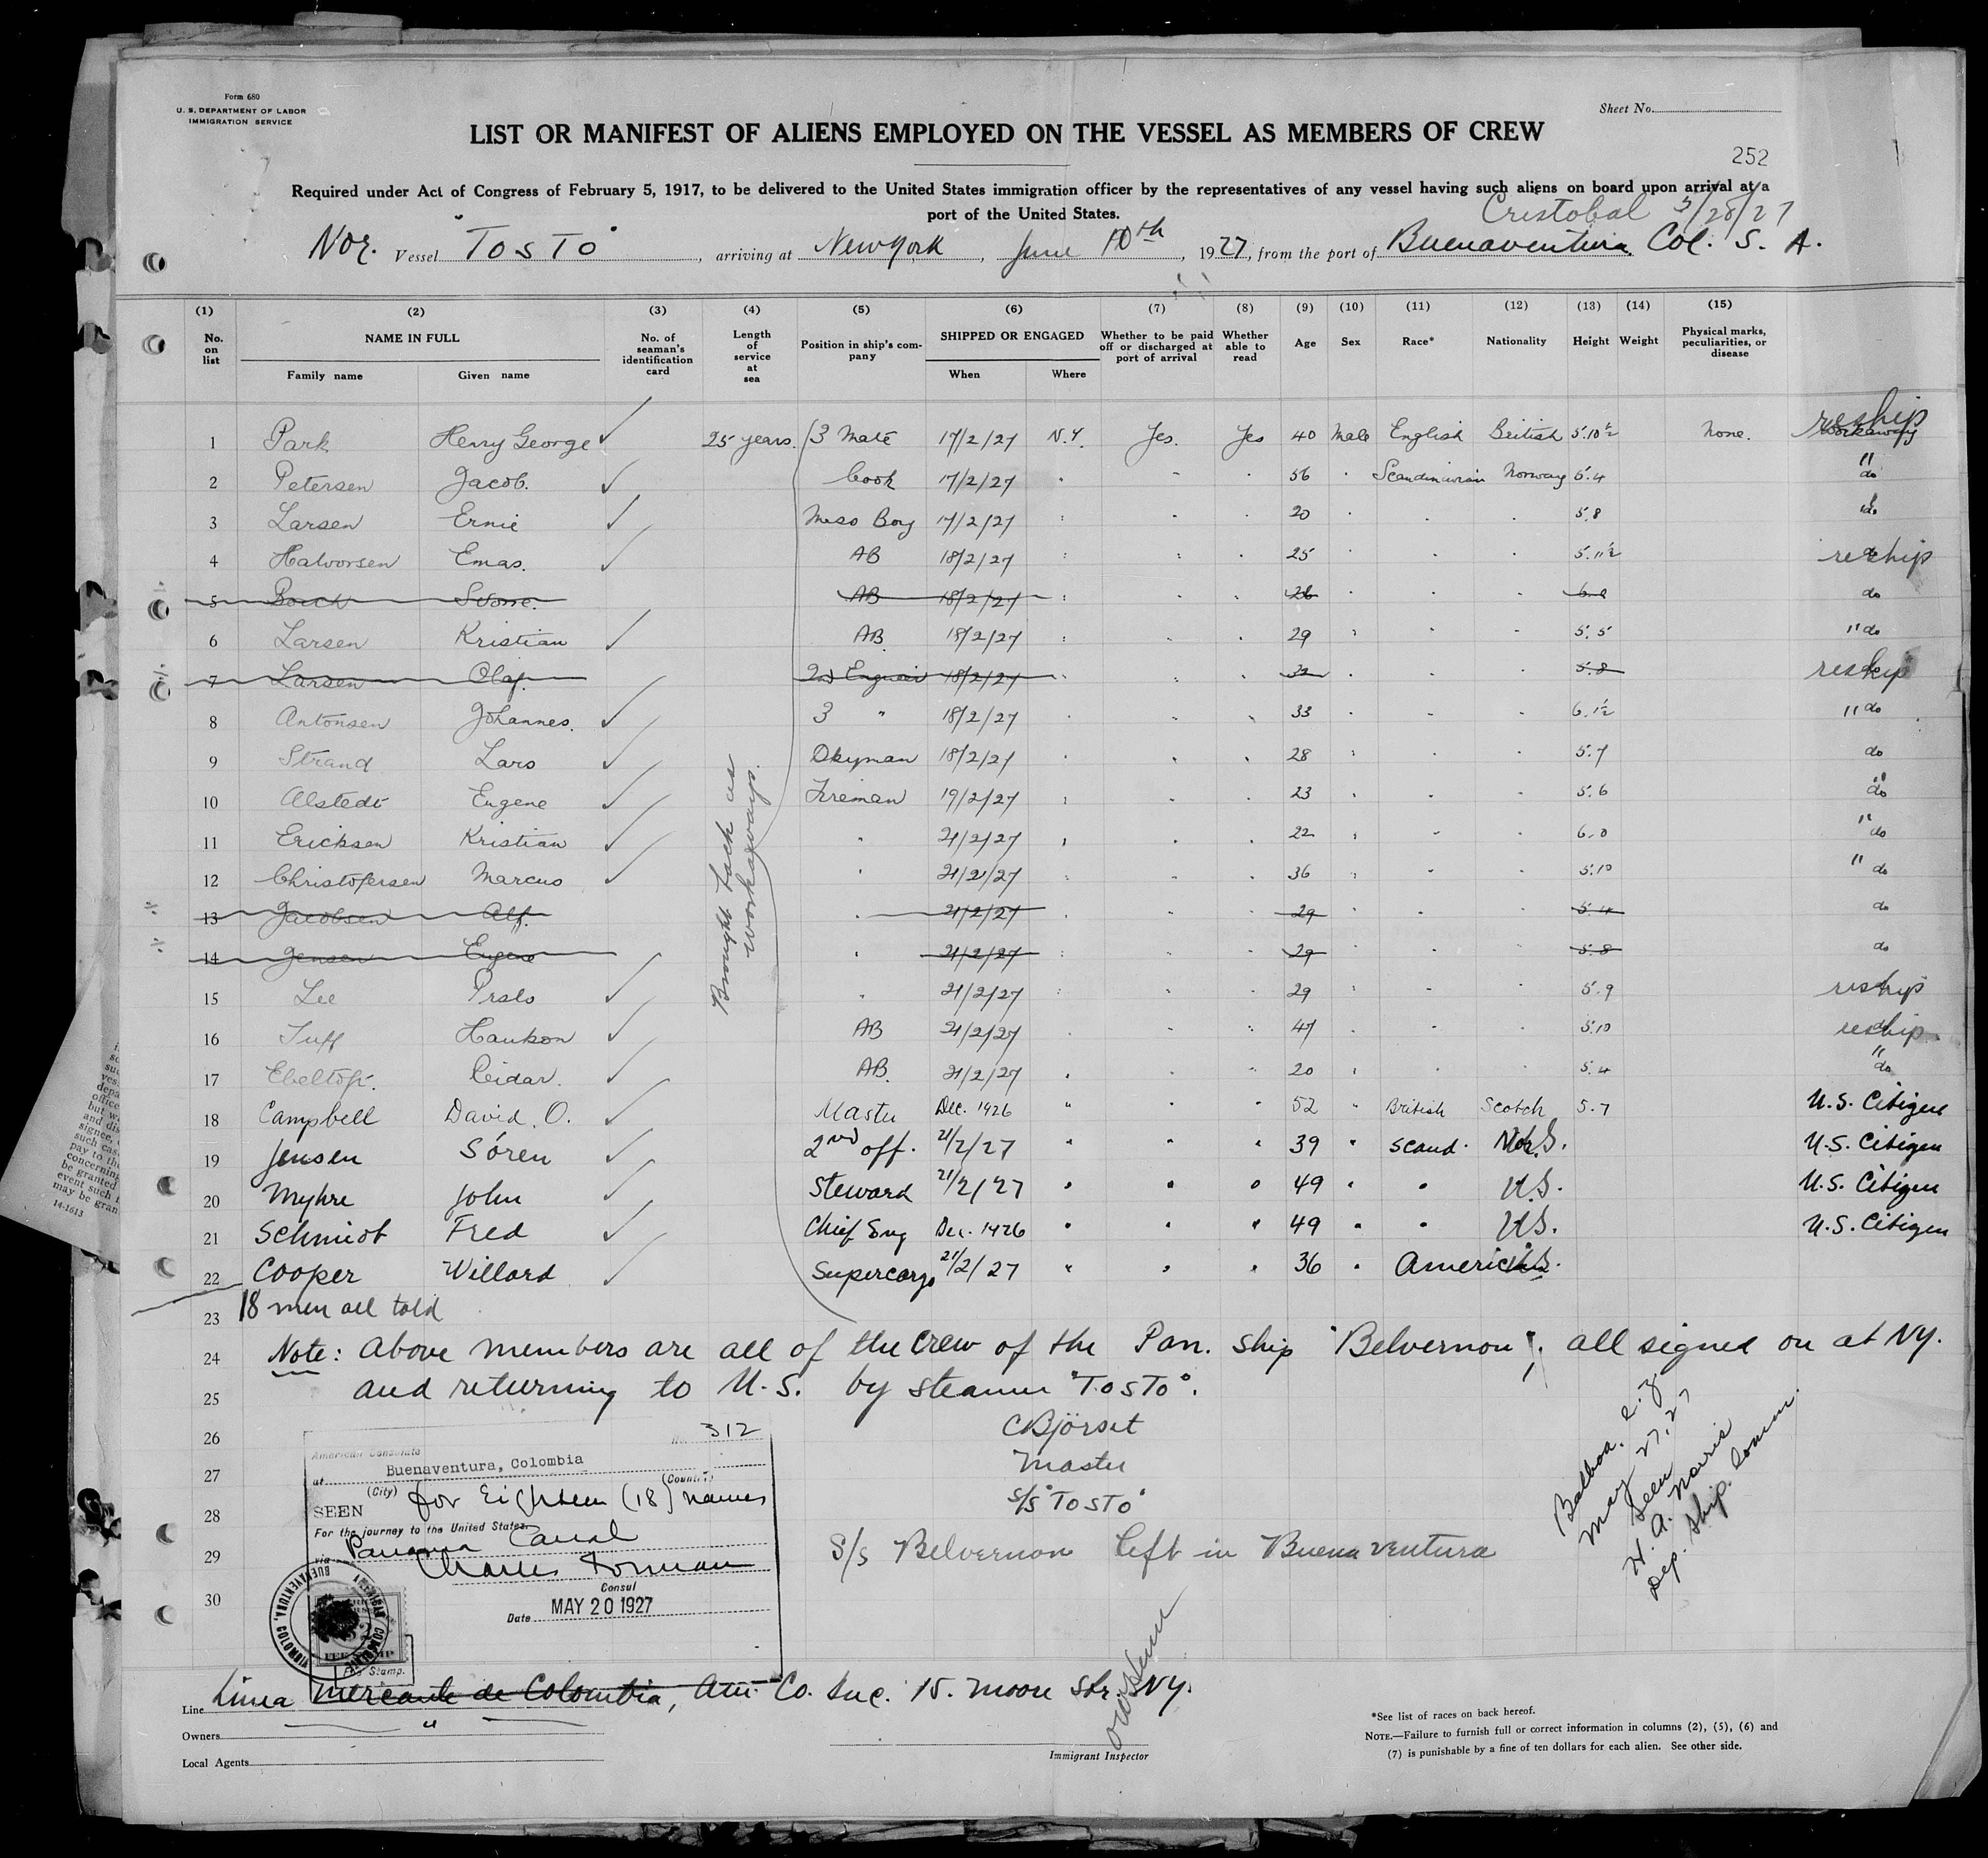 Form 680
U. S. DEPARTMENT OF LABOR
IMMIGRATION SERVICE
Sheet No.
LIST OR MANIFEST OF ALIENS EMPLOYED ON THE VESSEL AS MEMBERS OF CREW
252
Required under Act of Congress of February 5, 1917, to be delivered to the United States immigration officer by the representatives of any vessel having such aliens on board upon arrival at a
port of the United States.
Cristobal 5/28/27
Nor. Vessel "TOSTO", arriving at New York, June 10th, 1927, from the port of Buenaventura Col. S. A.
(1) (2) (3) (4) (5) (6) (7) (8) (9) (10) (11) (12) (13) (14) (15)
No. on list NAME IN FULL No. of seaman's identification card Length of service at sea Position in ship's company SHIPPED OR ENGAGED Whether to be paid off or discharged at port of arrival Whether able to read Age Sex Race* Nationality Height Weight Physical marks, peculiarities, or disease
Family name Given name When Where
1 Park Henry George 25 years. 3 Mate 17/2/27 N.Y. Yes. Yes 40 Male English British 5.10½ None. reship
2 Petersen Jacob. Cook 17/2/27 " 56 " Scandinavian Norway 5.4 " do
3 Larsen Ernie Mess Boy 17/2/27 20 5.8 do
4 Halvorsen Emas. AB 18/2/27 25 5.11½ reship
5 AB 18/2/27 26 do
6 Larsen Kristian AB 18/2/27 29 5.5 " do
7 Larsen Olaf. 2nd Engineer 18/2/27 5.8 reship
8 Antonsen Johannes. 3 " 18/2/27 33 6.1½ " do
9 Strand Lars Dkyman 18/2/27 28 5.7 do
10 Alstedt Eugene Fireman 19/2/27 23 5.6 " do
11 Ericksen Kristian " 21/2/27 22 6.0 " do
12 Christofersen Marcus " 21/2/27 36 5.10 " do
13 Jacobsen Alf. " 21/2/27 29 5.4 do
14 Jensen Eugene " 21/2/27 29 5.8 do
15 Lee " 21/2/27 29 5.9 reship
16 Tuff Haukon AB 21/2/27 47 5.10 reship
17 Ebeltoft. Reidar. AB 21/2/27 20 5.4 " do
18 Campbell David. O. Master Dec. 1926 " 52 " British Scotch 5.7 U.S. Citizen
19 Jensen Sóren 2nd off. 21/2/27 " 39 " Scand. U.S. Citizen
20 Myhre John Steward 21/2/27 " 49 " " U.S. U.S. Citizen
21 Schmidt Fred Chief Eng Dec. 1926 " 49 " " U.S. U.S. Citizen
22 Cooper Willard Supercargo 21/2/27 " 36 " American U.S.
Brought back as
workaways.
23 18 men all told
24 Note: Above members are all of the Crew of the Pan. Ship "Belvernon"; all signed on at NY.
25 and returning to U.S. by steamer "TOSTO".
26 C Björset
27 Master
28 S/S "TOSTO"
29 S/s Belvernon left in Buenaventura
30
No. 312
American Consulate
at Buenaventura, Colombia
(City) (Country)
SEEN for Eighteen (18) names
For the journey to the United States
via Panama Canal
Charles Forman
Consul
Date MAY 20 1927
AMERICAN CONSULATE BUENAVENTURA, COLOMBIA
Fee Stamp.
Balboa. C. Z
May 27, 27
Seen
H. A. Norris
Dep. Ship. Comm.
Line Linea Mercante de Colombia, Am. Co. Inc. 15. Moore Str. NY.
Owners "
Local Agents
Immigrant Inspector
*See list of races on back hereof.
NOTE.—Failure to furnish full or correct information in columns (2), (5), (6) and
(7) is punishable by a fine of ten dollars for each alien. See other side.
14-1613